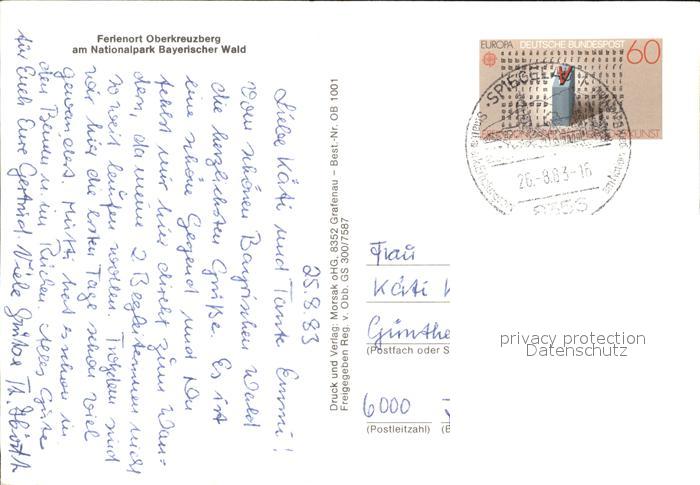 Ferienort Oberkreuzberg
am Nationalpark Bayerischer Wald
25.8.83
Liebe Käti und Tante Emmi!
Vom schönen Bayrischen Wald
die herzlichsten Grüße. Es ist
eine schöne Gegend und Du
fehlst mir hier direkt zum Wan-
dern, da meine 2 Begleiterinnen nicht
so weit laufen wollen. Trotzdem sind
wir hier die ersten Tage schon viel
gewandert. Mutti hat es schon in
den Beinen u. im Rücken. Alles Gute
für Euch Eure Gertrud. Viele Grüße
Druck und Verlag: Morsak oHG, 8352 Grafenau – Best.-Nr. OB 1001
Freigegeben Reg. v. Obb. GS 300/7587
EUROPA DEUTSCHE BUNDESPOST 60
SPIEGELAU
26.-8.83-16
Frau
Käti
Günthe
(Postfach oder S
6000
(Postleitzahl)
privacy protection
Datenschutz